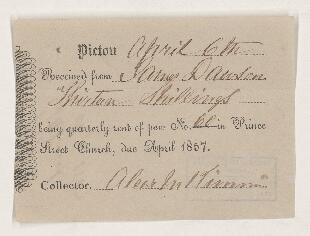 Pictou April 6th
Received from James Dawson
Thirteen Shillings
being quarterly rent of pew No. 60 in Prince
Street Church, due April 1857.
Collector.